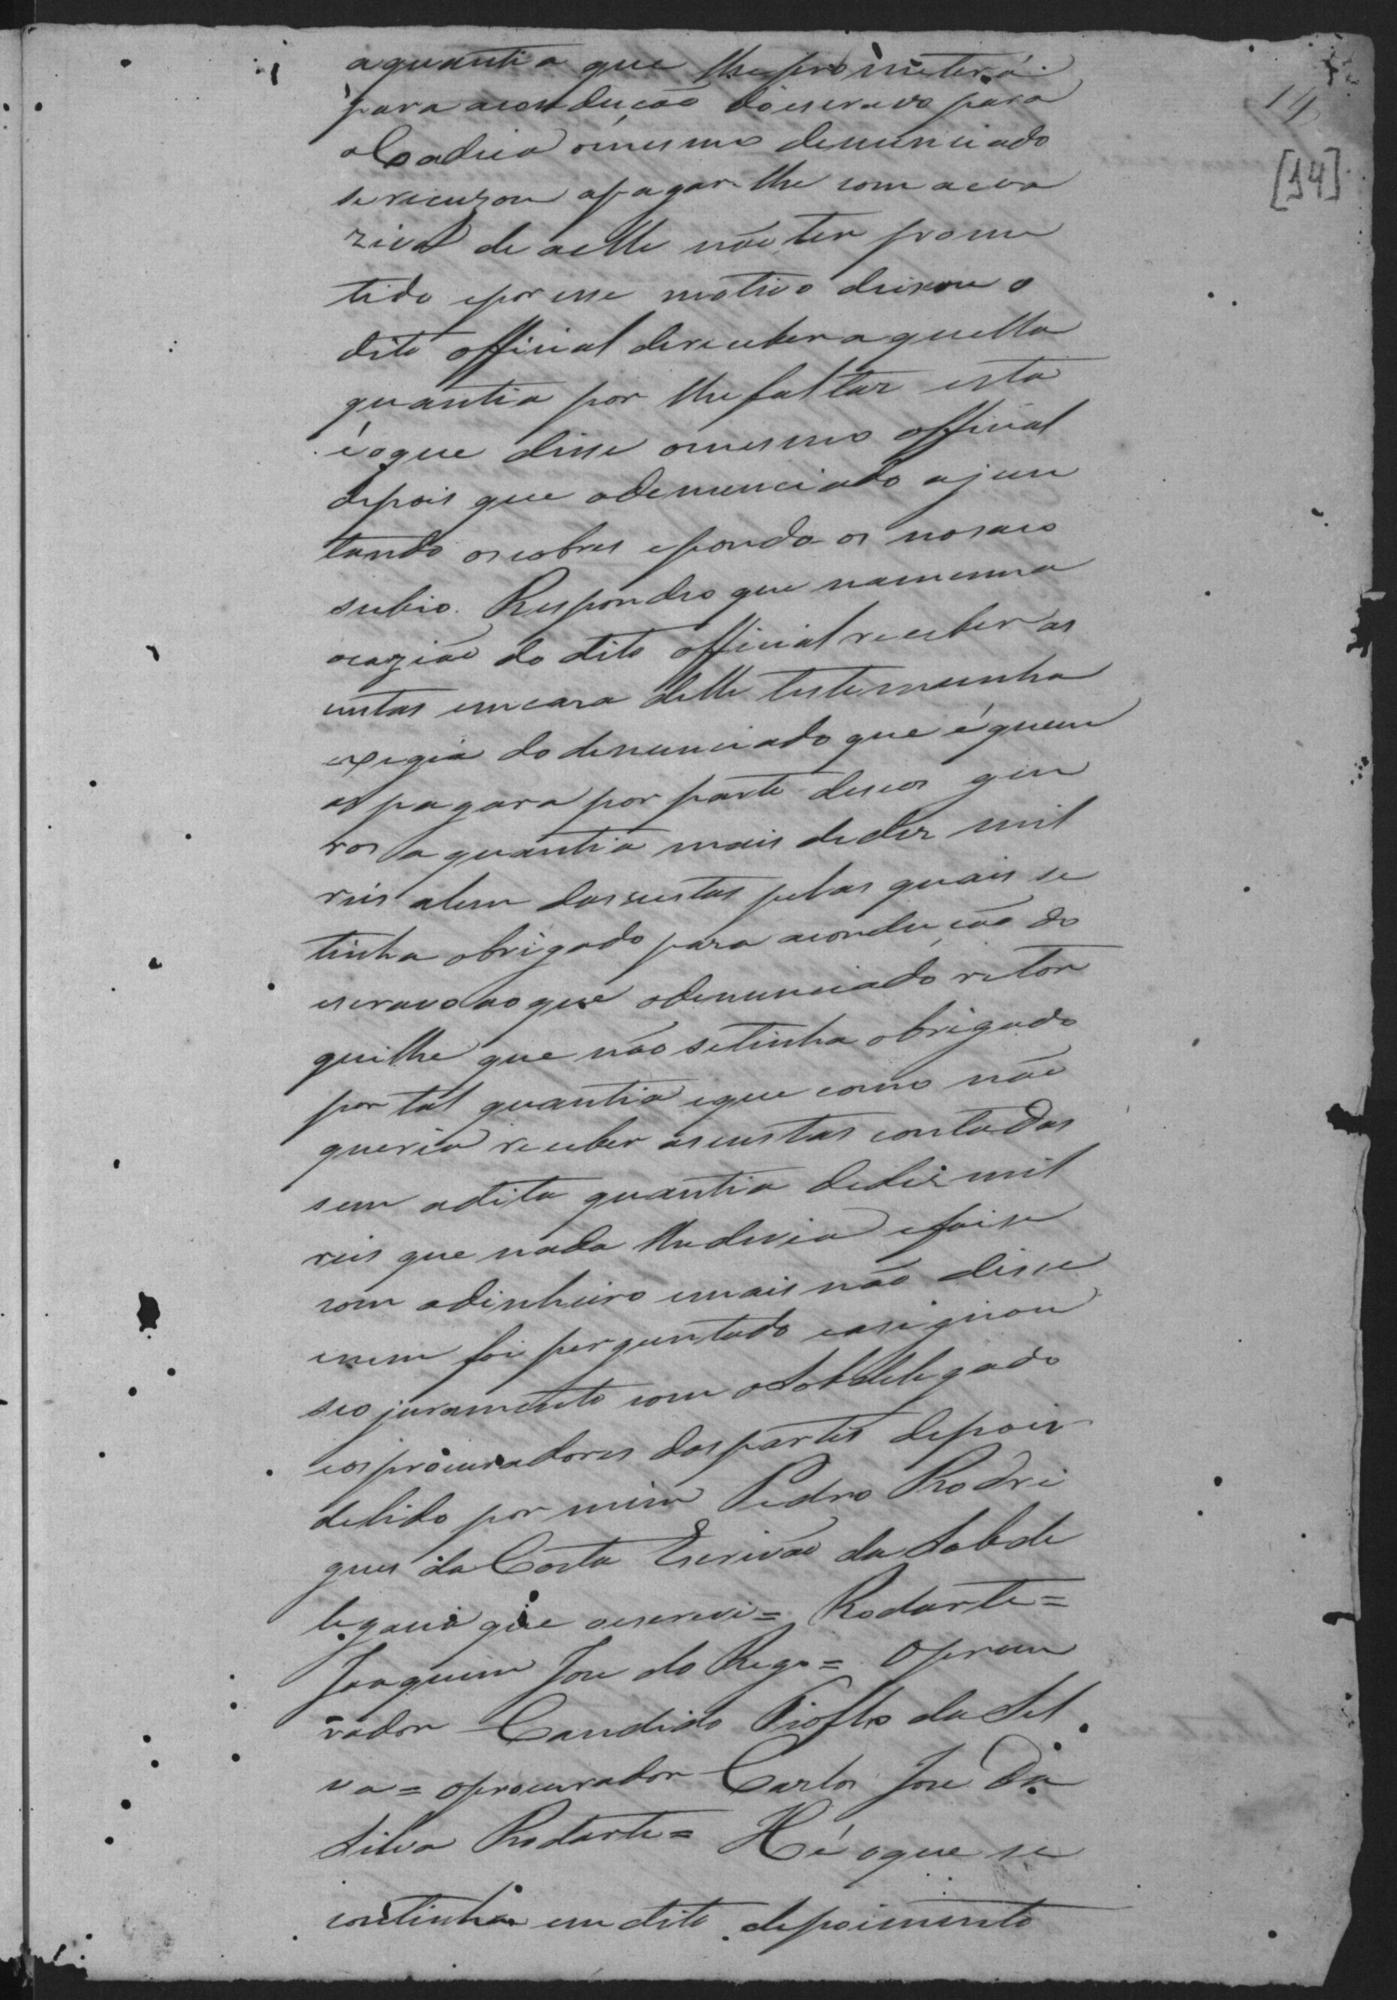 14
[14]
a quantia que lhe prometera
para acondução do escravo para
a Cadeia omesmo denunciado
se recuzou apagar-lhe com aeva
ziva de aelle não ter prome
tido eporesse motivo deixou o
dito official dereceber aquella
quantia por lhe faltar esta
é oque disse omesmo official
depois que odenunciado ajun
tando oscobres epondo os nosaco
subio. Respondeo que namesma
ocazião do dito official receber as
custas emcaza delle testemunha
exegia do denunciado que é quem
as pagara por parte deseos gen
ros a quantia mais dedez mil
reis alem das custas pelas quais se
tinha obrigado para acondução do
escravo ao que odenunciado retor
quilhe que não setinha obrigado
por tal quantia eque como não
queria receber ascustas contadas
sem adita quantia dedez mil
reis que nada lhe devia efoise
com odinheiro emais não disse
enem foi perguntado easignou
seo juramento com o Sobdelegado
eosprocuradores das partes depois
delido por mim Pedro Rodri
gues da Costa Escrivão da Sobde
legacia que oescrevi = Rodarte =
Joaquim Jose do Rego = Oprocu
rador Candido da Sil
va = oprocurador Carlos Jose Da
Silva Rodarte = Hé oque se
continha em dito depoimento